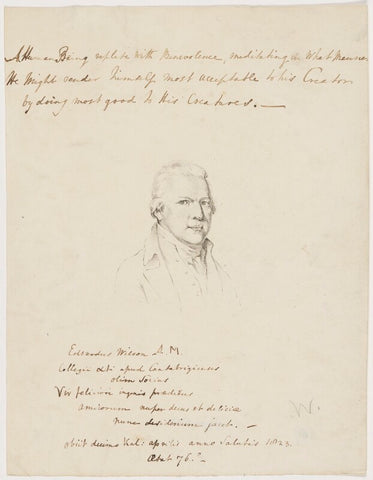 A Human Being replete with Benevolence, meditating in What Manner
He Might render himself most acceptable to his Creator
by doing most good to His Creatures. —
Edvardus Wilson A. M.
Collegii apud Cantabrigienses
olim Socius
Vir felicioni ingenio præditus
amicorum nuper decus et deliciæ
nunc desiderium jacet. —
obiit decimo Kal: aprilis anno Salutis 1823.
Ætat 76. —
W.